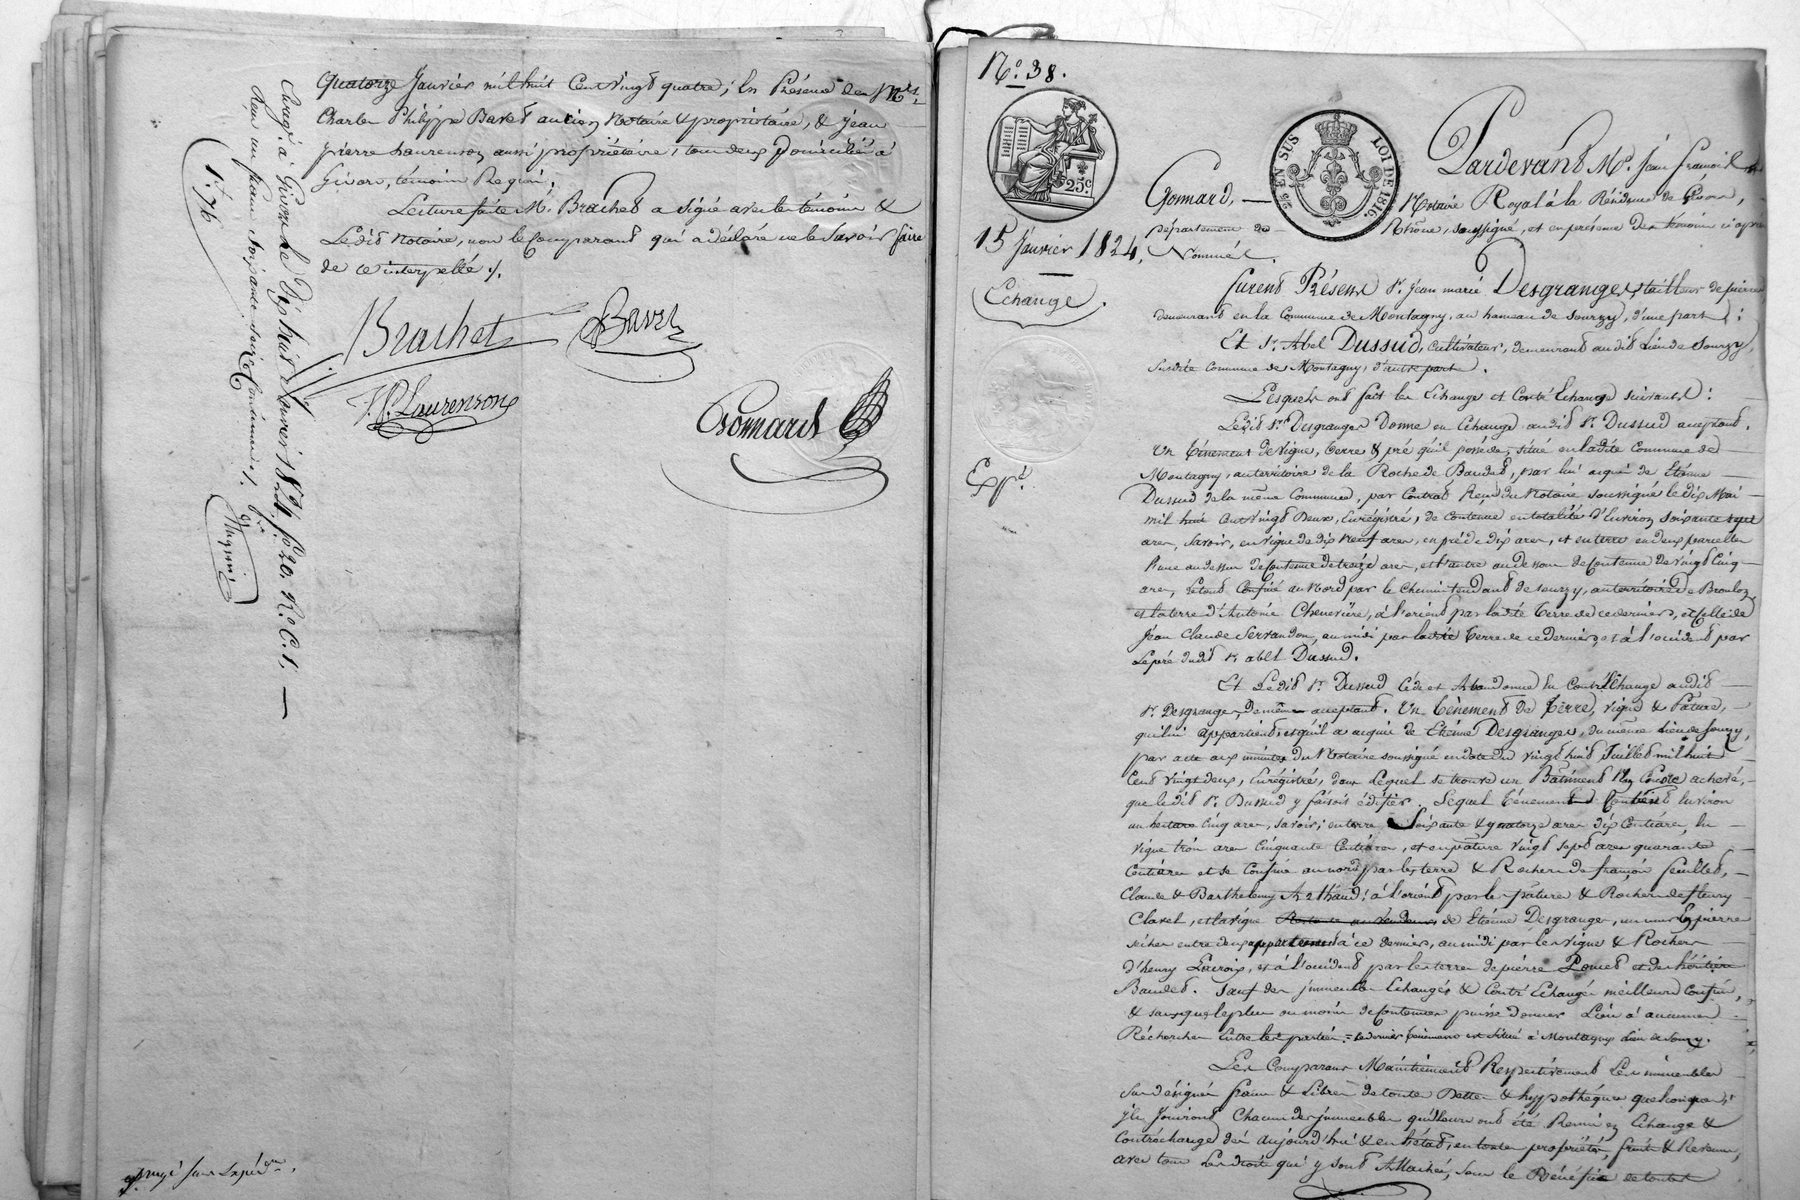 Quatorze Janvier mil huit Cent vingt quatre; En Présence de Mrs.
Charles Philippe Bavet ancien Notaire & propriétaire, & Jean
pierre Laurenson aussi propriétaire, tous deux Domiciliés à
Givors, témoins Requis.
Lecture faite Mr. Brachet a signé avec les témoins &
Ledit Notaire, non le Comparant qui a déclaré ne le Savoir faire
de ce interpellé ./.
Brachet
Bavet
J. P. Laurenson
Gomard
Enregé. à Givors Le Dix huit Janvier 1824, fo. 20. Ro. C. 1.
Reçu un franc Soixante-seize Centimes ./.
1.76
No. 38.
25 EN SUS
LOI DE 1816.
25c.
15 Janvier 1824.
Echange.
Expé.
Pardevant Me. Jean François
Gomard, Notaire Royal à la Résidence de Givors,
Département du Rhône, soussigné, et en présence des témoins ci après
Nommés.
furent Présens Sr. Jean marie Desgranges, tailleur de pierres
demeurant en la Commune de Montagny, au hameau de Sourzy, d'une part;
Et Sr. Abel Dussud, Cultivateur, demeurant audit Lieu de Sourzy,
Susdite Commune de Montagny, d'autre part.
Lesquels ont fait les Echange et Contr'Echange suivants:
Ledit Sr. Desgranges Donne en Echange audit Sr. Dussud acceptant.
Un Ténement de Vigne, Terre & pré qu'il possède, situé en ladite Commune de
Montagny, au territoire de la Roche de Baudet, par lui acquis de Etienne
Dussud de la même Commune, par Contrat Reçu du Notaire soussigné le dix Mai
mil huit Cent Vingt Deux, Enregistré; de Contenue en totalité d'Environ soixante sept
ares, Savoir, en vigne de dix neuf ares, en pré de dix ares, et en terre en deux parcelles
l'une au dessus de Contenue de treize ares, et l'autre au dessous de Contenue de Vingt Cinq
ares, Le tout Confiné au Nord par le Chemin tendant de Sourzy, au territoire de
et la terre d'Antoine Chenevière, à l'orient par ladite Terre de ce dernier, et celle de
Jean Claude Servandon, au midi par ladite Terre de ce dernier, et à l'occident par
Le pré dudit Sr. Abel Dussud.
Et Ledit Sr. Dussud Cède et Abandonne En Contr'Echange audit
Sr. Desgranges, de même acceptant. Un Ténement de Terre, vigne & Pature,
qui lui appartient, et qu'il a acquis de Etienne Desgranges, du même Lieu de Sourzy,
par acte aux minutes du Notaire soussigné en date du vingt huit Juillet mil huit
Cent Vingt deux, Enregistré, dans Lequel se trouve un Batiment Non Encore achevé,
que ledit Sr. Dussud y faisoit édifier. Lequel Ténement Contient Environ
un hectare Cinq ares, savoir; en terre, Soixante & quatorze ares dix Centiares, En
vigne trois ares Cinquante Centiares, et en pature Vingt sept ares quarante
Centiares et se Confine au nord par les terre & Rochers de françois feuillet,
Claude & Barthelemy Arthaud; à l'orient par les pature & Rocher de fleury
Clavel, et la vigne de Etienne Desgranges, un mur En pierres
sèches entre deux à ce dernier, au midi par les vigne & Rochers
d'henry Lacroix, et à l'occident par les terres de pierre Poncet et des héritiers
Baudet. Sauf des immeubles Echangés & Contr'Echangés meilleurs Confins,
& sans que le plus ou moins de Contenues puisse donner Lieu à aucunes
Recherches Entre les parties. = Le dernier ténement est situé à Montagny Lieu de Sourzy.
Les Comparans Maintiennent Respectivement Les immeubles
Sus désignés francs & Libres de toutes Dettes & hypothèques quelconques;
ils Jouiront Chacun des immeubles qui leur ont été Remis en Echange &
Contréchange dès aujourd'hui & en l'état, en toute propriété, fruits & Revenus,
avec tous Les droits qui y sont Attachés, Sous le Bénéfice de toutes